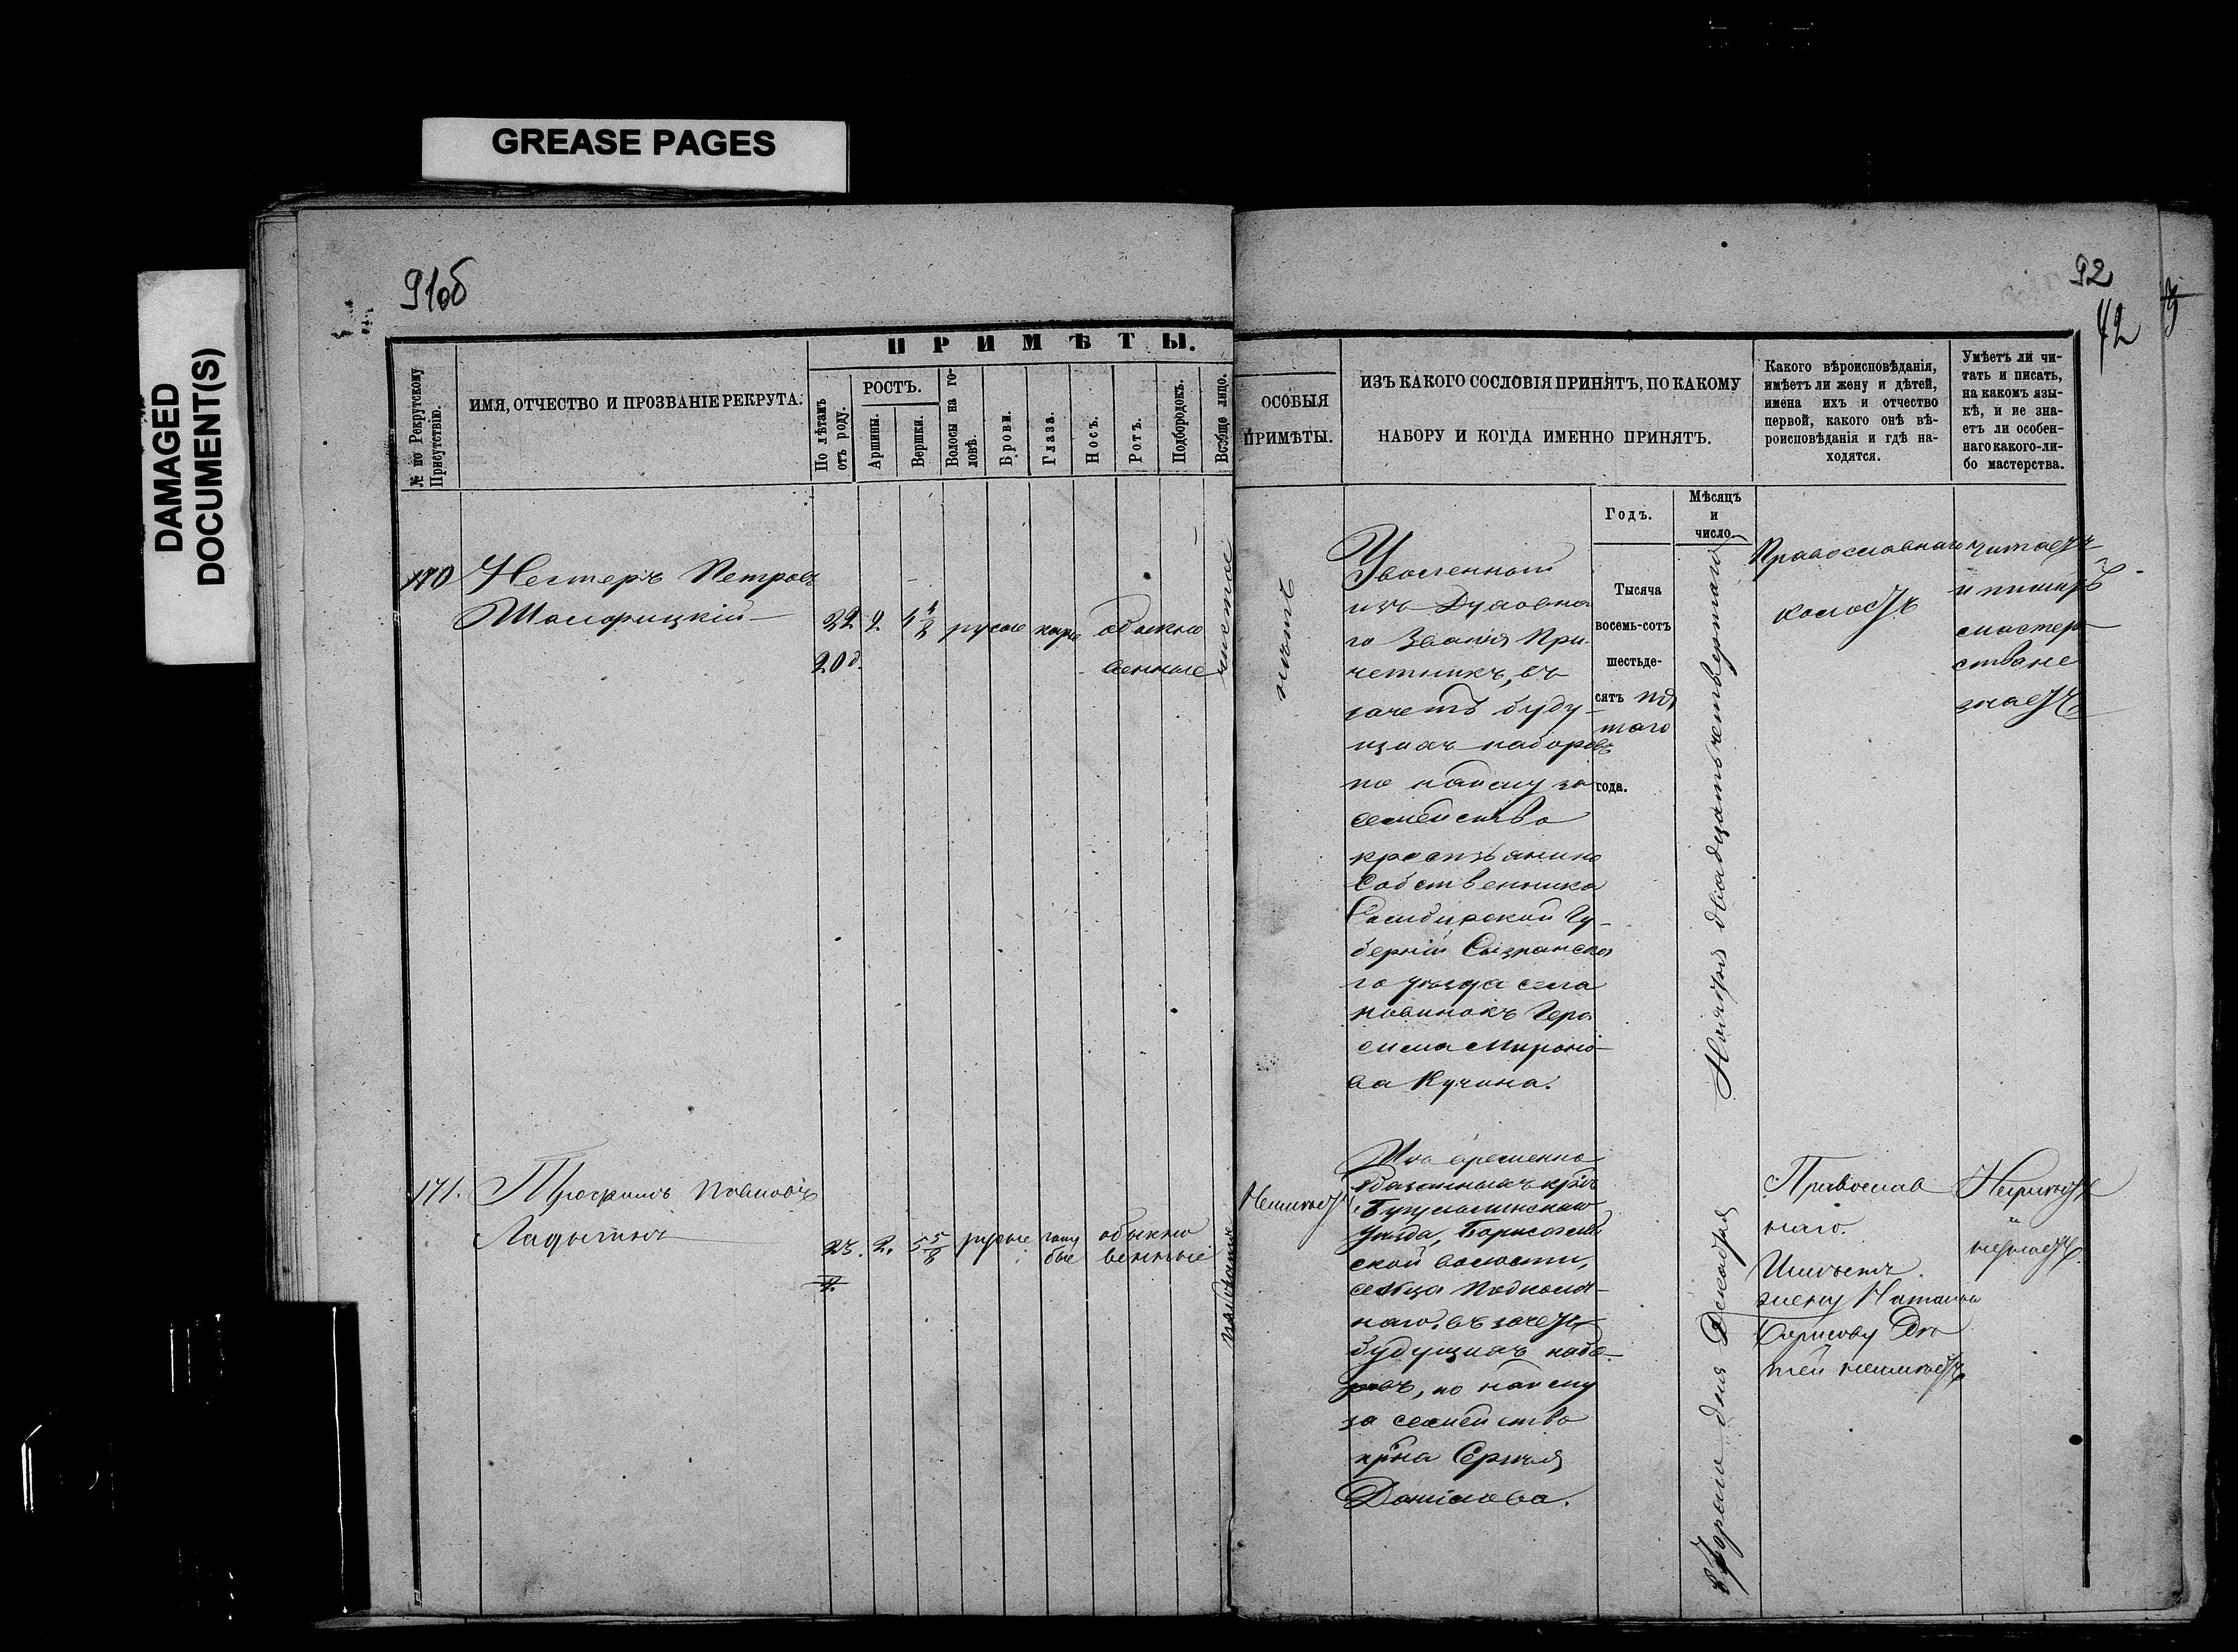 GREASE PAGES
DAMAGED
DOCUMENT(S)
91об
92
42
ПРИМѢТЫ.
№ по Рекрутскому
Присутствію.
ИМЯ, ОТЧЕСТВО И ПРОЗВАНІЕ РЕКРУТА.
По лѣтамъ
отъ роду.
РОСТЪ.
Аршины.
Вершки.
Волосы на го-
ловѣ.
Брови.
Глаза.
Носъ.
Ротъ.
Подбородокъ.
Вообще лицо.
ОСОБЫЯ
ПРИМѢТЫ.
ИЗЪ КАКОГО СОСЛОВІЯ ПРИНЯТЪ, ПО КАКОМУ
НАБОРУ И КОГДА ИМЕННО ПРИНЯТЪ.
Какого вѣроисповѣданія,
имѣетъ ли жену и дѣтей,
имена ихъ и отчество
первой, какого онѣ вѣ-
роисповѣданія и гдѣ на-
ходятся.
Умѣетъ ли чи-
тать и писать,
на какомъ язы-
кѣ, и не зна-
етъ ли особен-
наго какого-ли-
бо мастерства.
Годъ.
Мѣсяцъ
и
число.
170
Нестеръ Петровъ
22
2.
русые
каріе
обыкно
венные
чистое
нѣтъ
Уволенной
изъ Духовна
го Званія При
четникъ, въ
зачетъ буду-
щихъ наборовъ
по найму за
семейство
крестьянина
Собственника
Симбирской Гу-
берніи Сызранска
го уѣзда села
Новинокъ Гера
сима Мироно-
ва Кучина.
Тысяча
восемь-сотъ
шестьде-
сятъ пя
таго
года.
Ноября двадцать четвертаго
Православнаго
холостъ
читаетъ
и пишетъ
мастер
ства не
знаетъ
171.
Павловъ
Ладыгинъ
23.
2.
5 5/8
русые
голу
бые
обыкно
венные
Неимѣетъ
Изъ временно
обязанныхъ кр.
Бугульминскаго
уѣзда,
ской волости,
сельца
наго. въ зачетъ
будущихъ набо-
ровъ, по найму
за семейство
кр-на Сергѣя
Данилова.
Втораго дня Декабря
Православ
наго.
Имѣетъ
жену Наталью
Борисову Дѣ
тей неимѣетъ